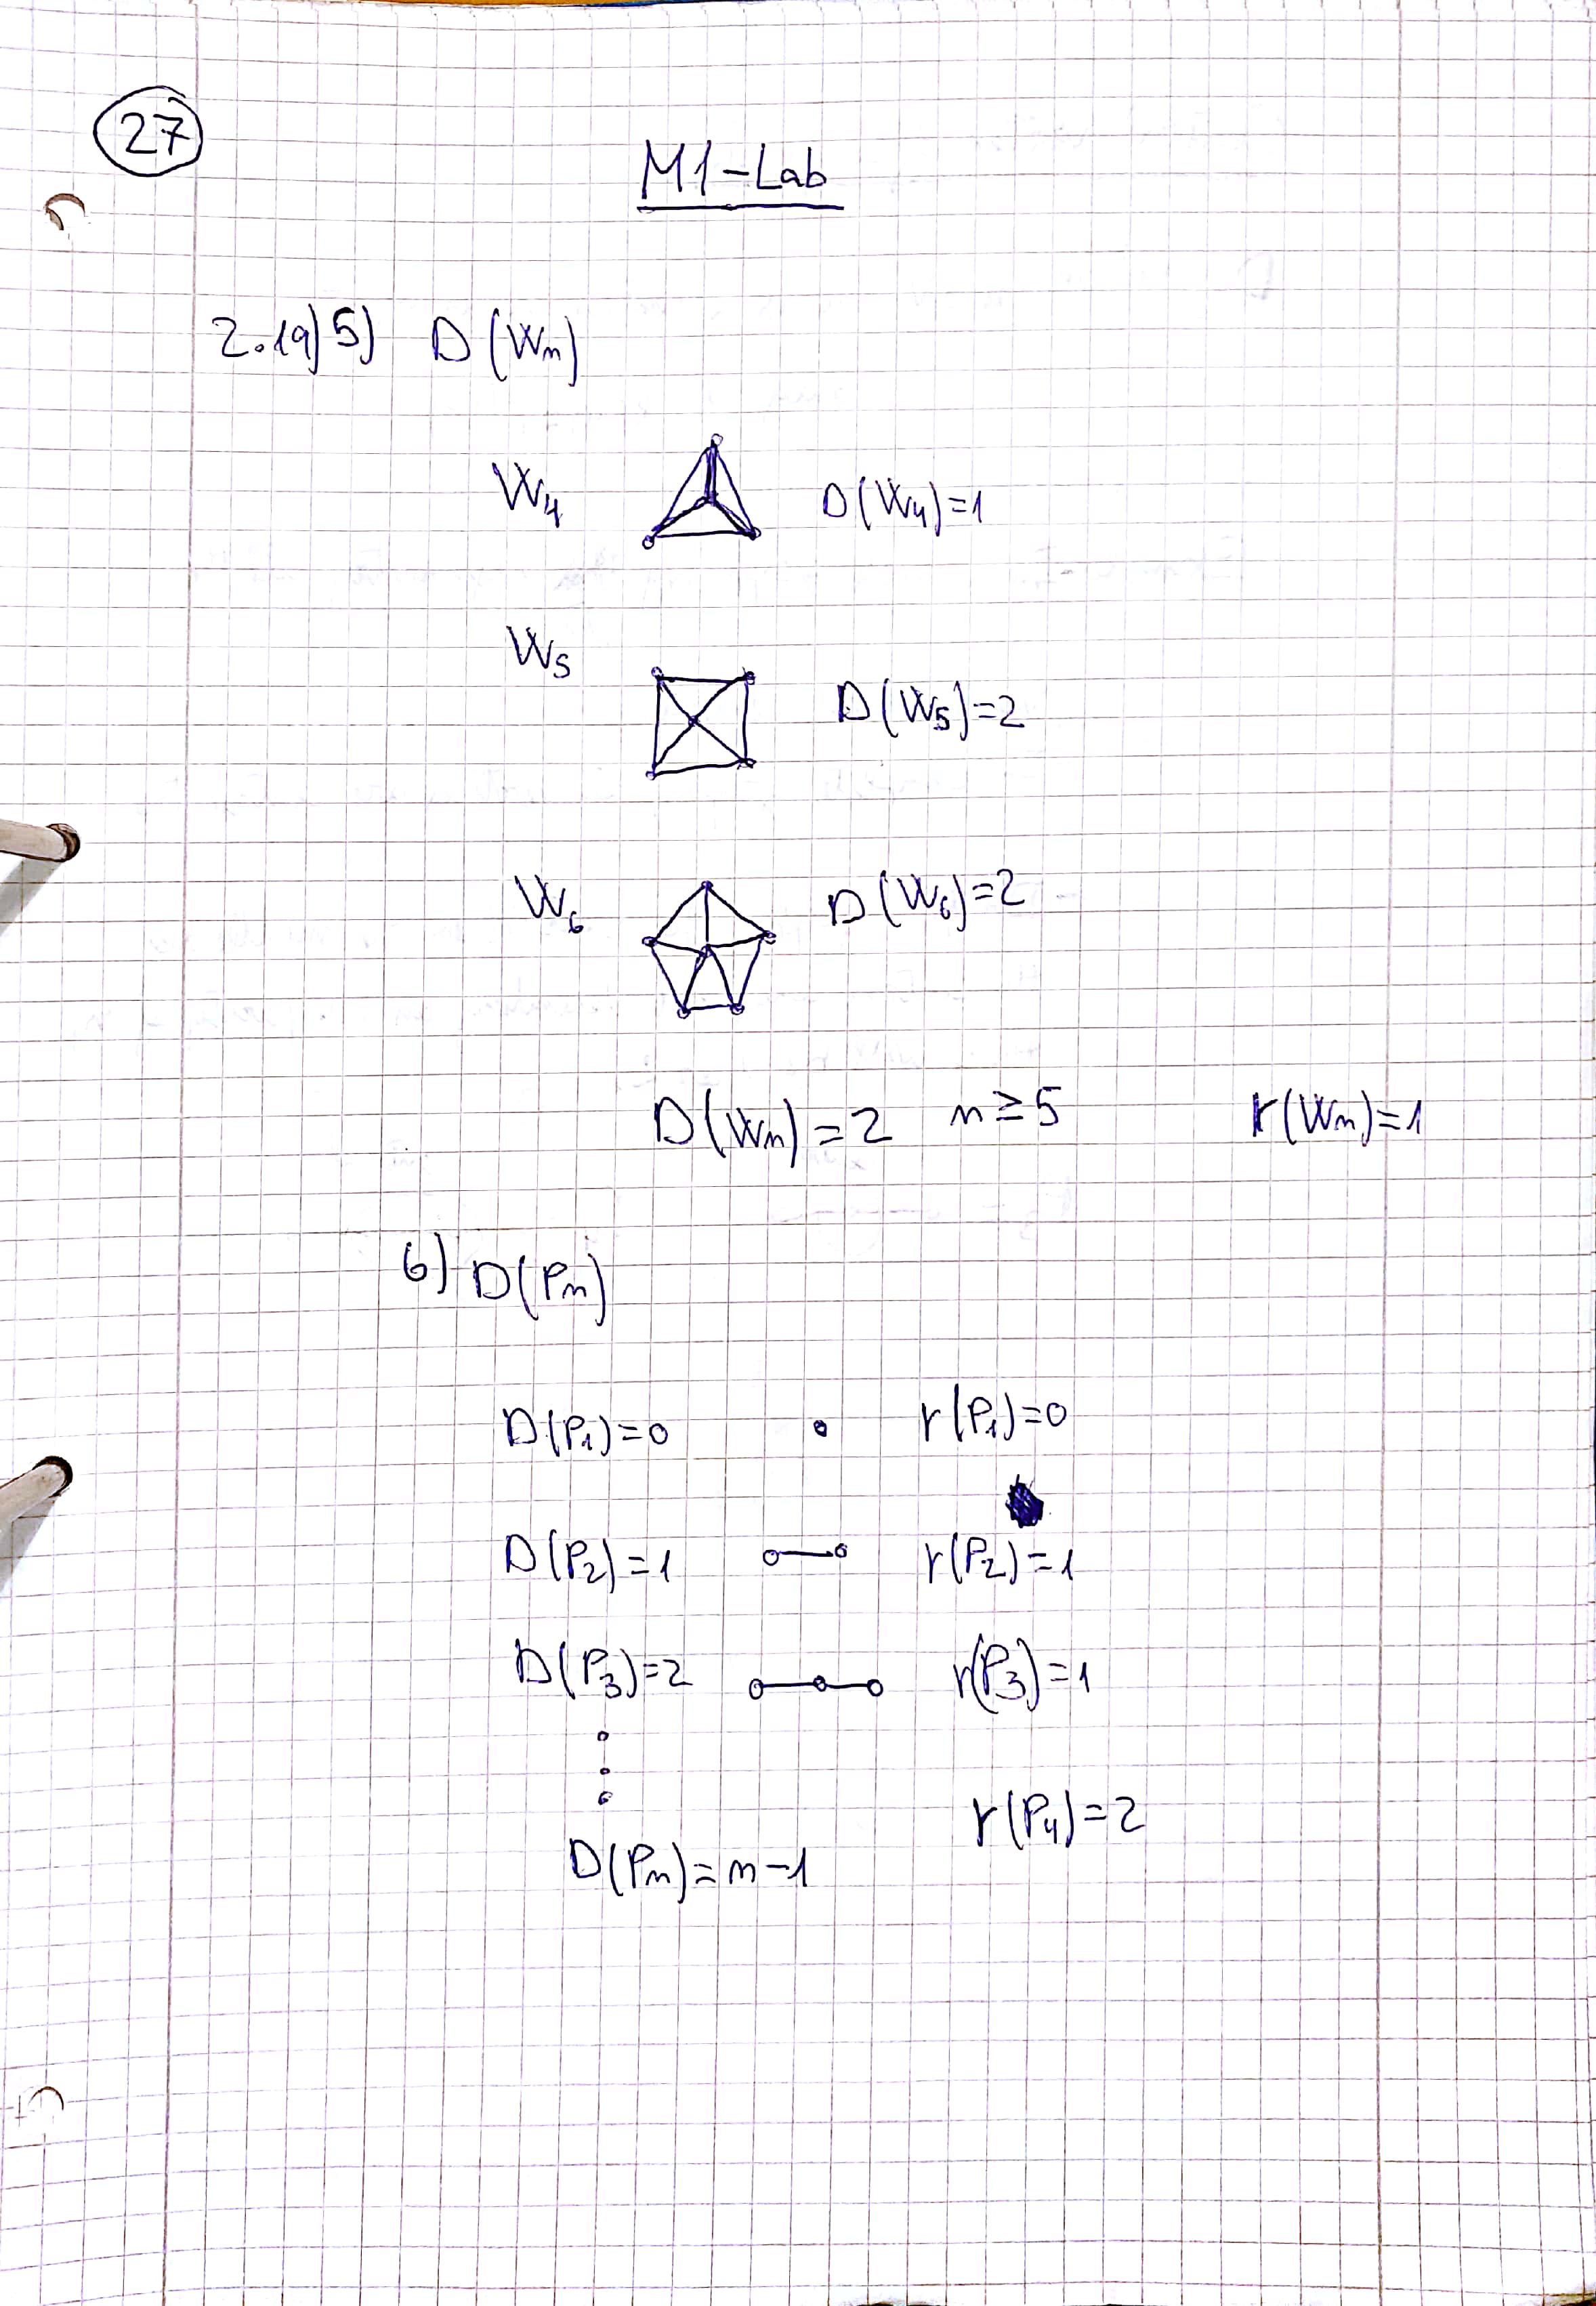 27
M1-Lab
2.19) 5) D(Wn)
W4 D(W4)=1
W5
D(W5)=2
W6 D(W6)=2
D(Wn)=2 n≥5 r(Wn)=1
6) D(Pn)
D(P1)=0 r(P1)=0
D(P2)=1 r(P2)=1
D(P3)=2 r(P3)=1
r(P4)=2
D(Pn)=n-1